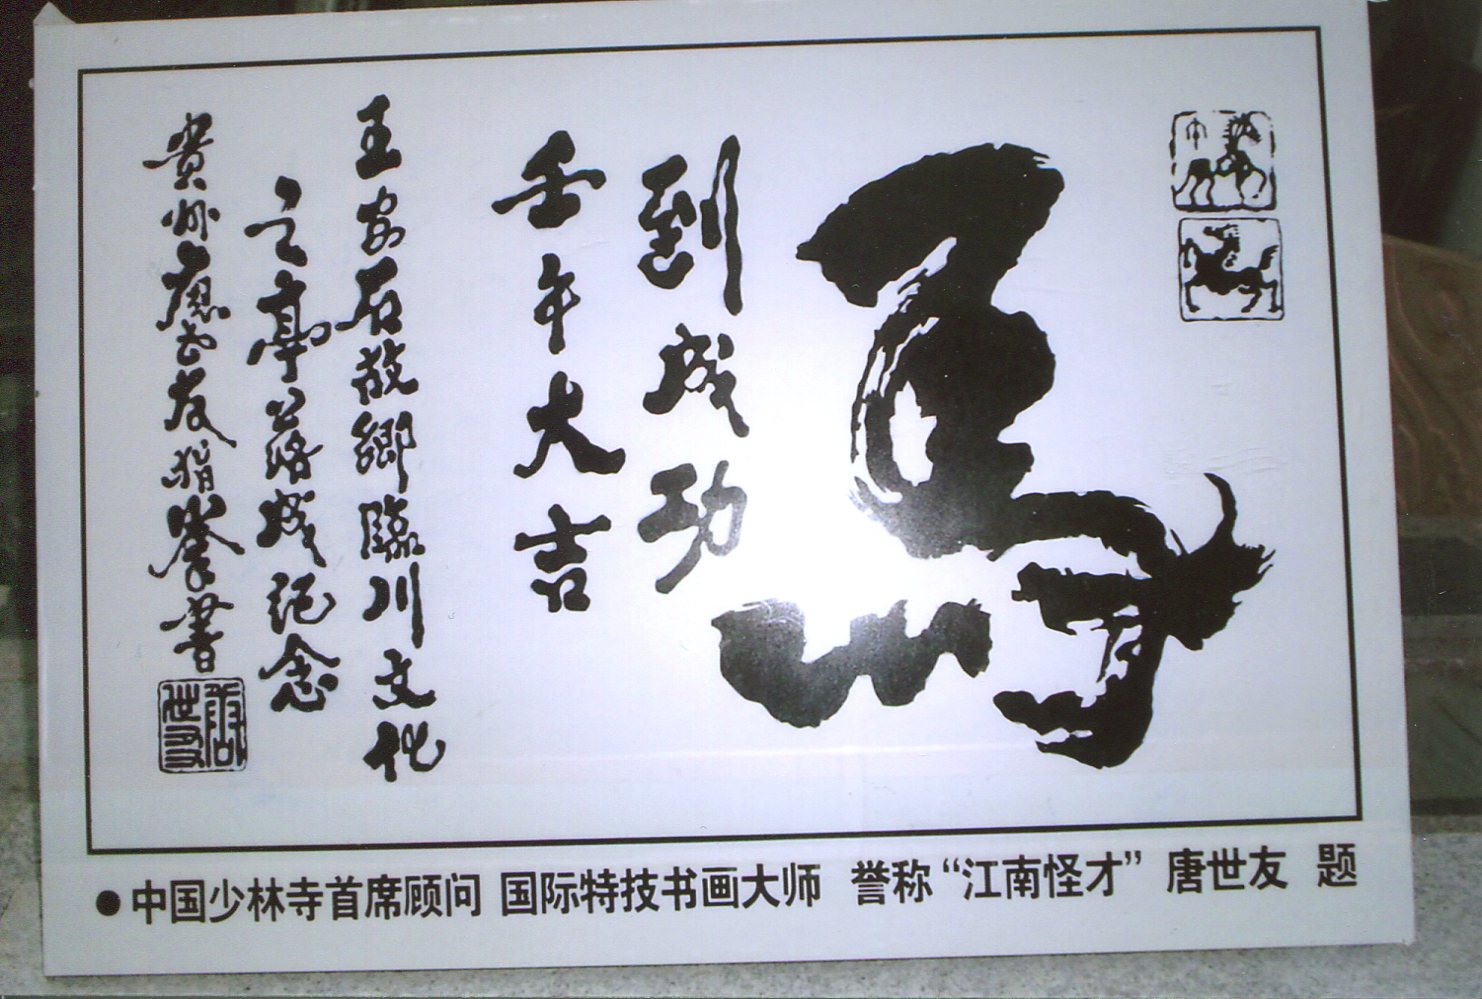 馬
到成功
壬午大吉
王安石故鄉臨川文化
之亭落成纪念
貴州世友指拳書
唐世友
●中国少林寺首席顾问 国际特技书画大师 誉称“江南怪才” 唐世友 题